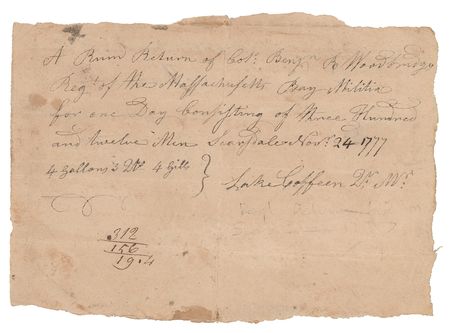 A Rum Return of Col. Benjn R Woodbridge
Regt of the Massachusetts Bay Militia
for one Day Consisting of three Hundred
and twelve Men Scarsdale Novr 24 1777
4 Gallons 3 Qts 4 Gills } Luke Coffeen Qr Mr
312
156
19.4